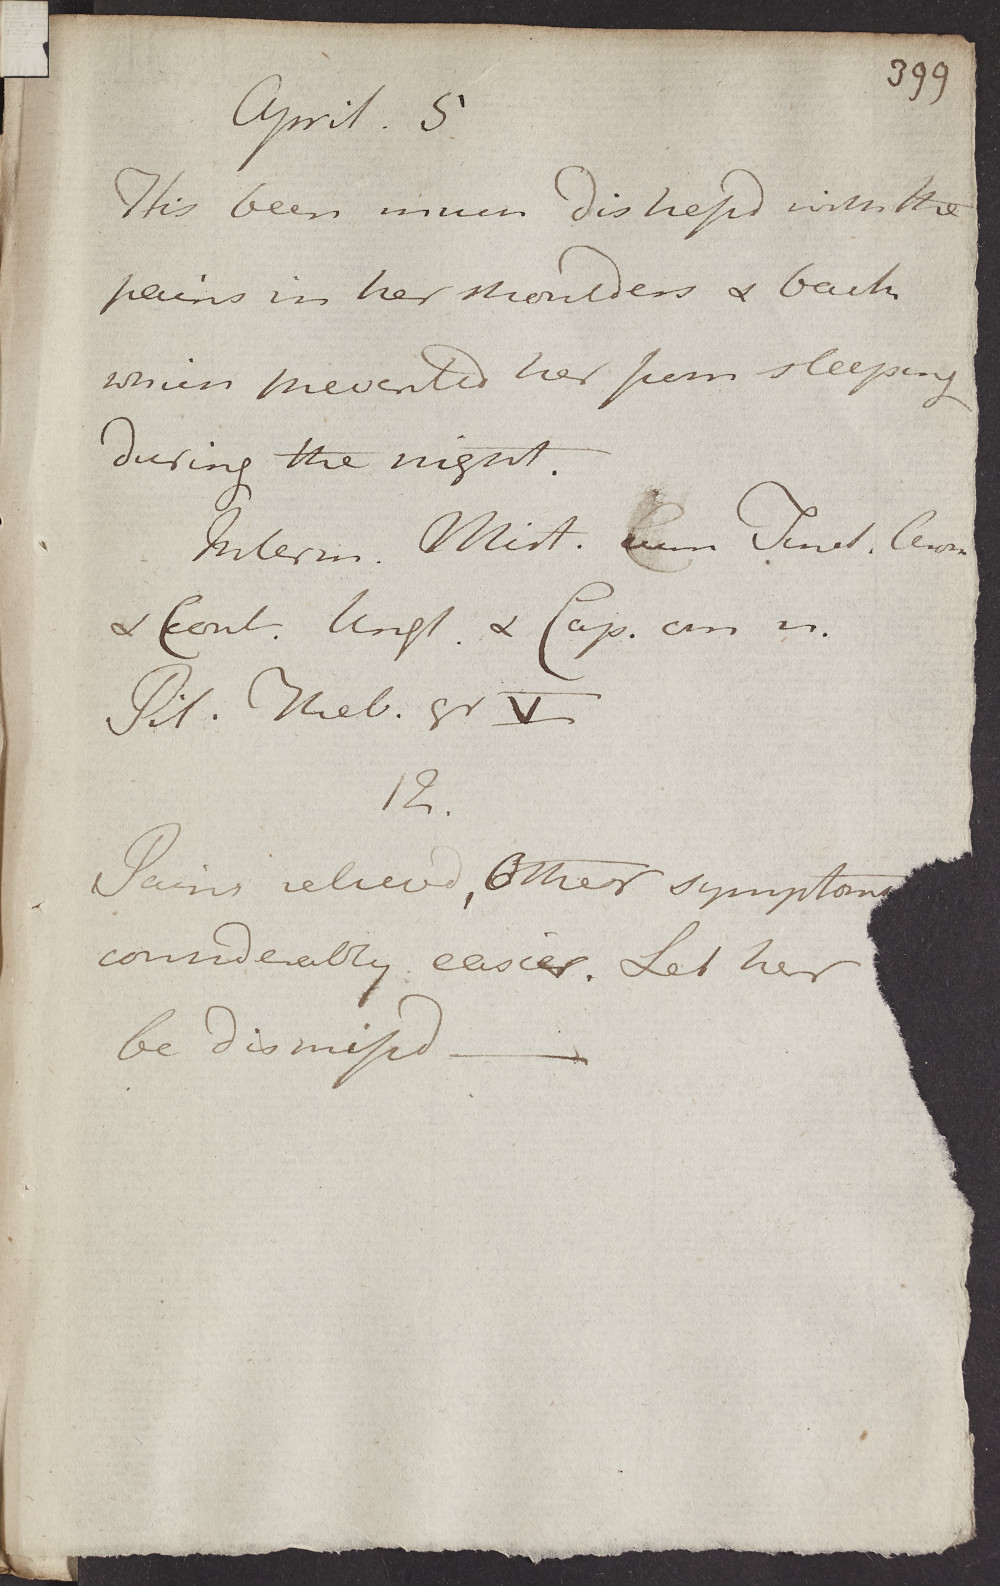 399
April. 5
Has been much distress'd with the
pains in her shoulders & back
which prevented her from sleeping
during the night.
Interm. Mist. cum Tinct.
& Cont. Ungt. & Cap. om n.
Pil. Theb. gr V
12.
Pains relieved, Other symptoms
considerably easier. Let her
be dismiss'd